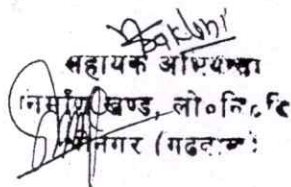 सहायक अभियन्ता
निर्माण खण्ड, लो०नि०वि
नगर (गढ़वाल)